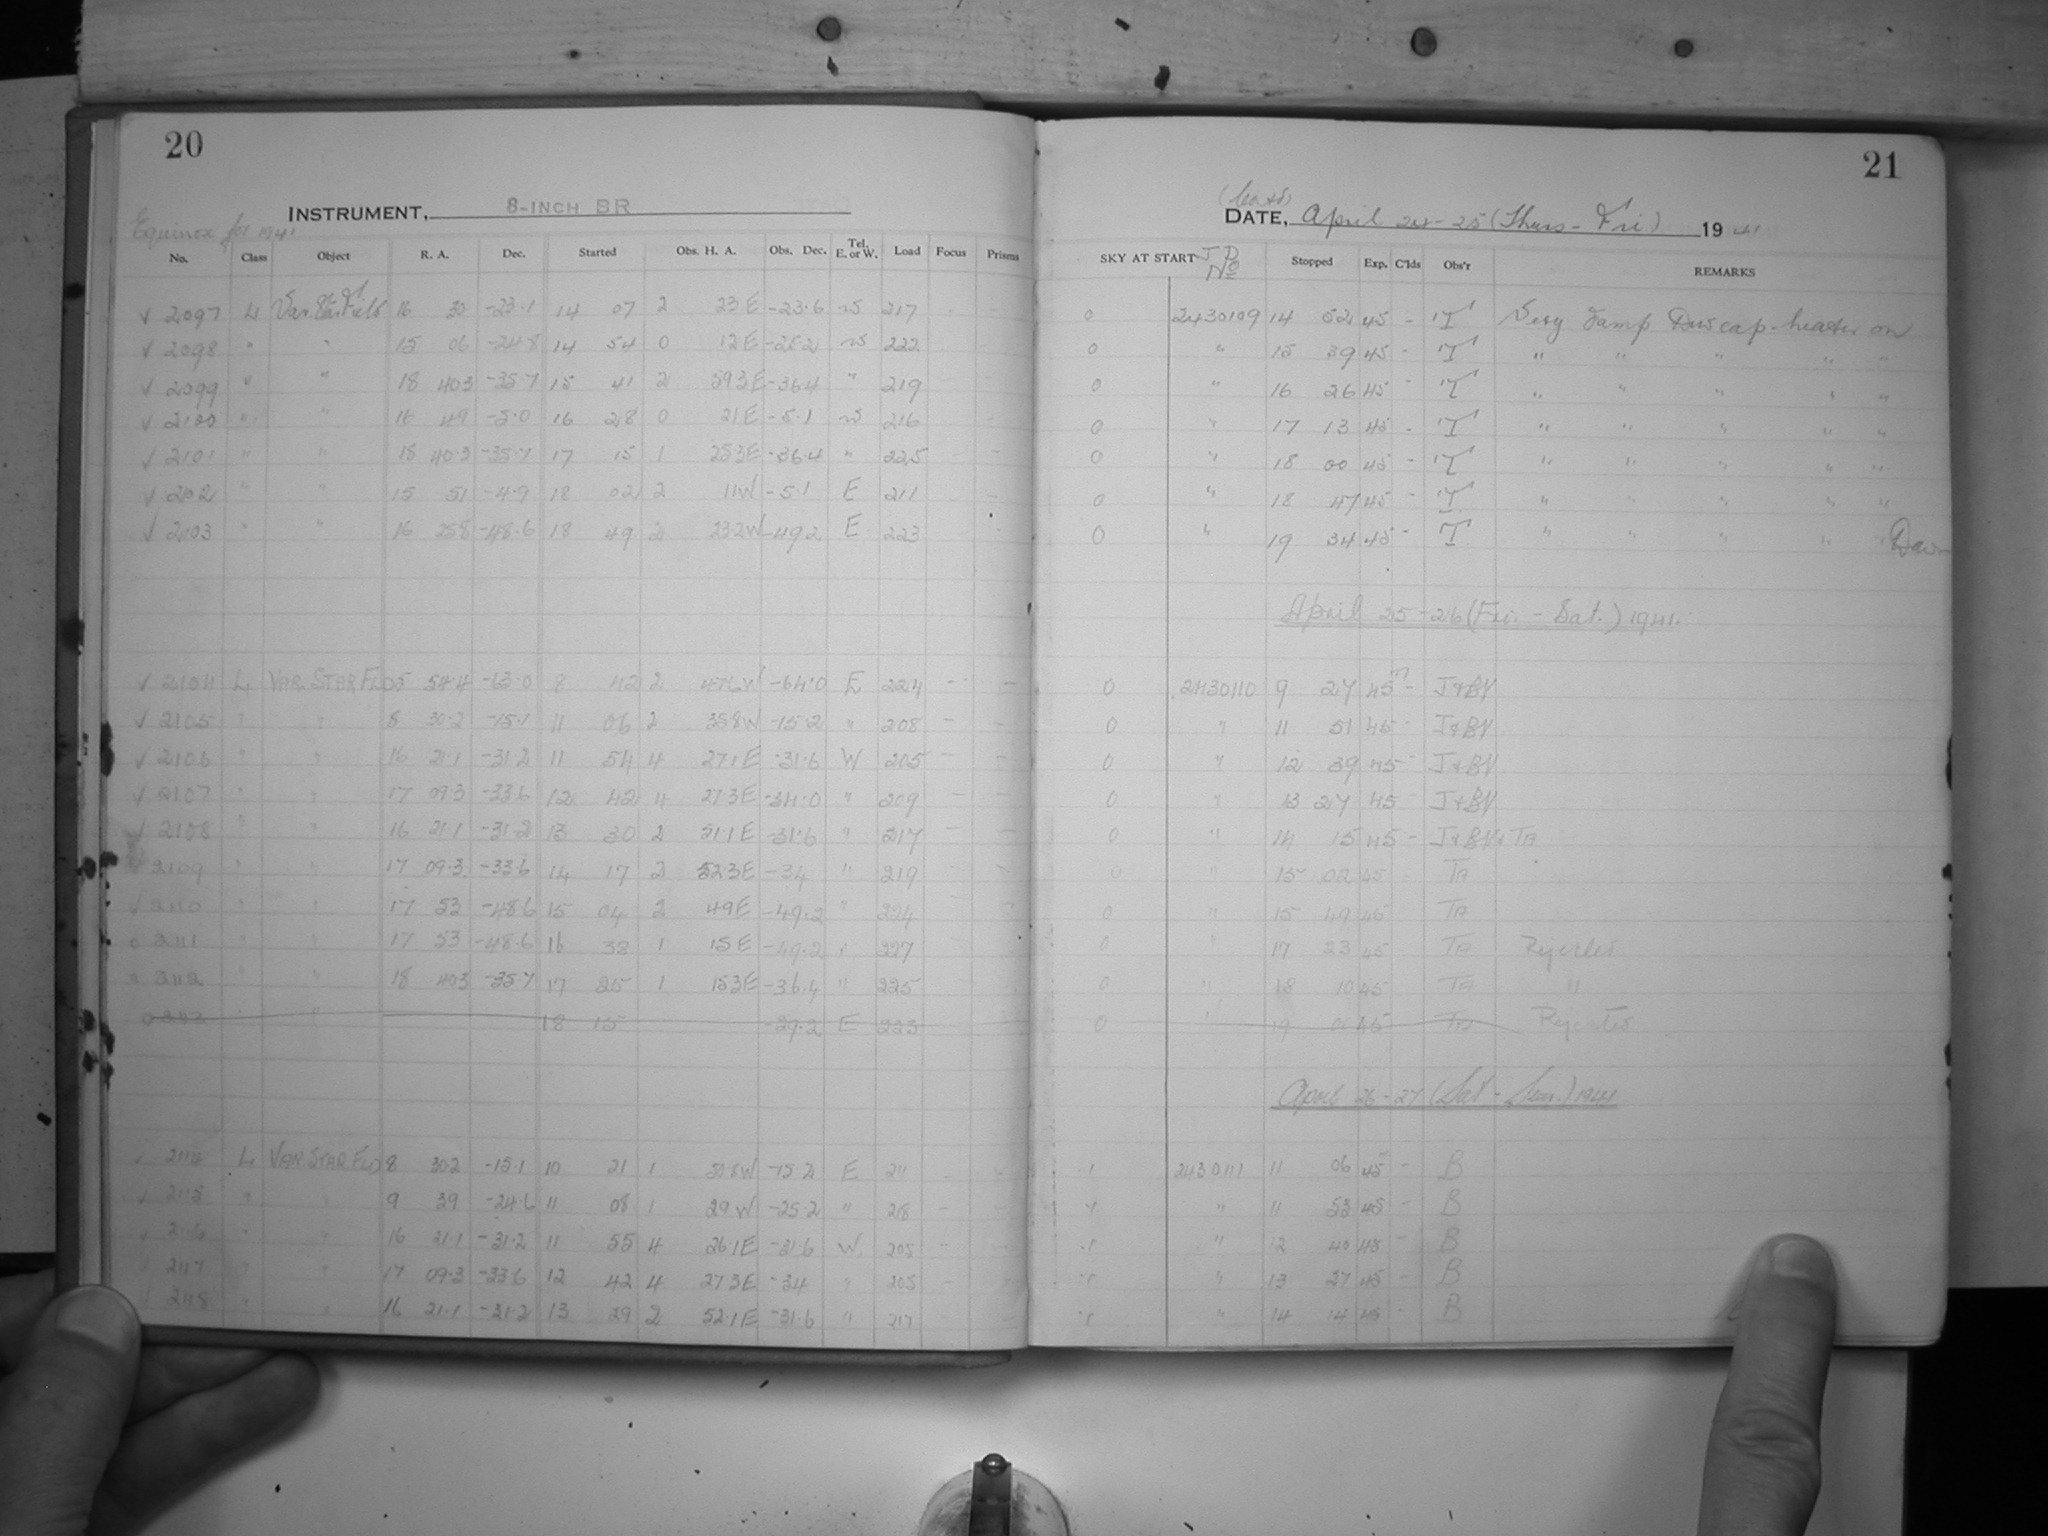 20
Equinox for 1941
INSTRUMENT, 8-INCH BR
No. Class Object R. A. Dec. Started Obs. H. A. Obs. Dec. Tel. E. or W. Load Focus Prisms
√ 2097 L Var. Star Field 16 30 -23.1 14 07 2 23 E -23.6 W 217
√ 2098 " " 15 06 -24.8 14 54 0 12 E -25.2 W 222
√ 2099 " " 18 40.3 -35.7 15 41 2 59.3 E -36.4 " 219
√ 2100 " " 16 49 -5.0 16 28 0 21 E -5.1 W 216
√ 2101 " " 18 40.3 -35.7 17 15 1 25.3 E -36.4 " 225
√ 2102 " " 15 51 -4.9 18 02 2 11 W -5.1 E 211
√ 2103 " " 16 25.8 -48.6 18 49 2 23.2 W -49.2 E 223
√ 2104 L VAR. STAR FLD 5 54.4 -63.0 8 42 2 W -64.0 E 224 - -
√ 2105 " " 8 30.2 -15.1 11 06 2 35.8 W -15.2 " 208 - -
√ 2106 " " 16 21.1 -31.2 11 54 4 27.1 E -31.6 W 205 - -
√ 2107 " " 17 09.3 -33.6 12 42 4 27.3 E -34.0 " 209 - -
√ 2108 " " 16 21.1 -31.2 13 30 2 51.1 E -31.6 " 217 - -
√ 2109 " " 17 09.3 -33.6 14 17 2 52.3 E -34 " 219
√ 2110 " " 17 53 -48.6 15 04 2 49 E -49.2 " 224
0 2111 " " 17 53 -48.6 16 38 1 15 E -49.2 " 227
2112 " " 18 40.3 -35.7 17 25 1 15.3 E -36.4 " 225
0 2113 " " 18 15 -29.2 E 223
2114 L VAR STAR FLD 8 30.2 -15.1 10 21 1 50.8 W -15.2 E 211 - -
√ 2115 " " 9 39 -24.6 11 08 1 29 W -25.2 " 218 - -
2116 " " 16 21.1 -31.2 11 55 4 26.1 E -31.6 W 205 - -
2117 " " 17 09.3 -33.6 12 42 4 27.3 E -34 " 205 - -
2118 " " 16 21.1 -31.2 13 29 2 52.1 E -31.6 " 217 - -
21
DATE, April 24-25 (Thurs - Fri) 1941
SKY AT START J D No Stopped Exp. C'lds Obs'r REMARKS
0 2430109 14 52 45 - T Very Damp Dew cap heater on
0 " 15 39 45 - T " " " " "
0 " 16 26 45 - T " " " " "
0 " 17 13 45 - T " " " " "
0 " 18 00 45 - T " " " " "
0 " 18 47 45 - T " " " " "
0 " 19 34 45 - T " " " " " Dawn
April 25-26 (Fri. - Sat.) 1941.
0 2430110 9 27 45m - J+BV
0 " 11 51 45 - J+BV
0 " 12 39 45 - J+BV
0 " 13 27 45 - J+BV
0 " 14 15 45 - J+BV+TA
0 " 15 02 45 TA
0 " 15 49 45 TA
0 " 17 23 45 TA Rejected
0 " 18 10 45 TA "
0 " 19 45 TA Rejected
April 26-27 (Sat - Sun.) 1941
2430111 11 06 45 - B
" 11 53 45 - B
" 12 40 45 - B
" 13 27 45 - B
" 14 14 45 - B